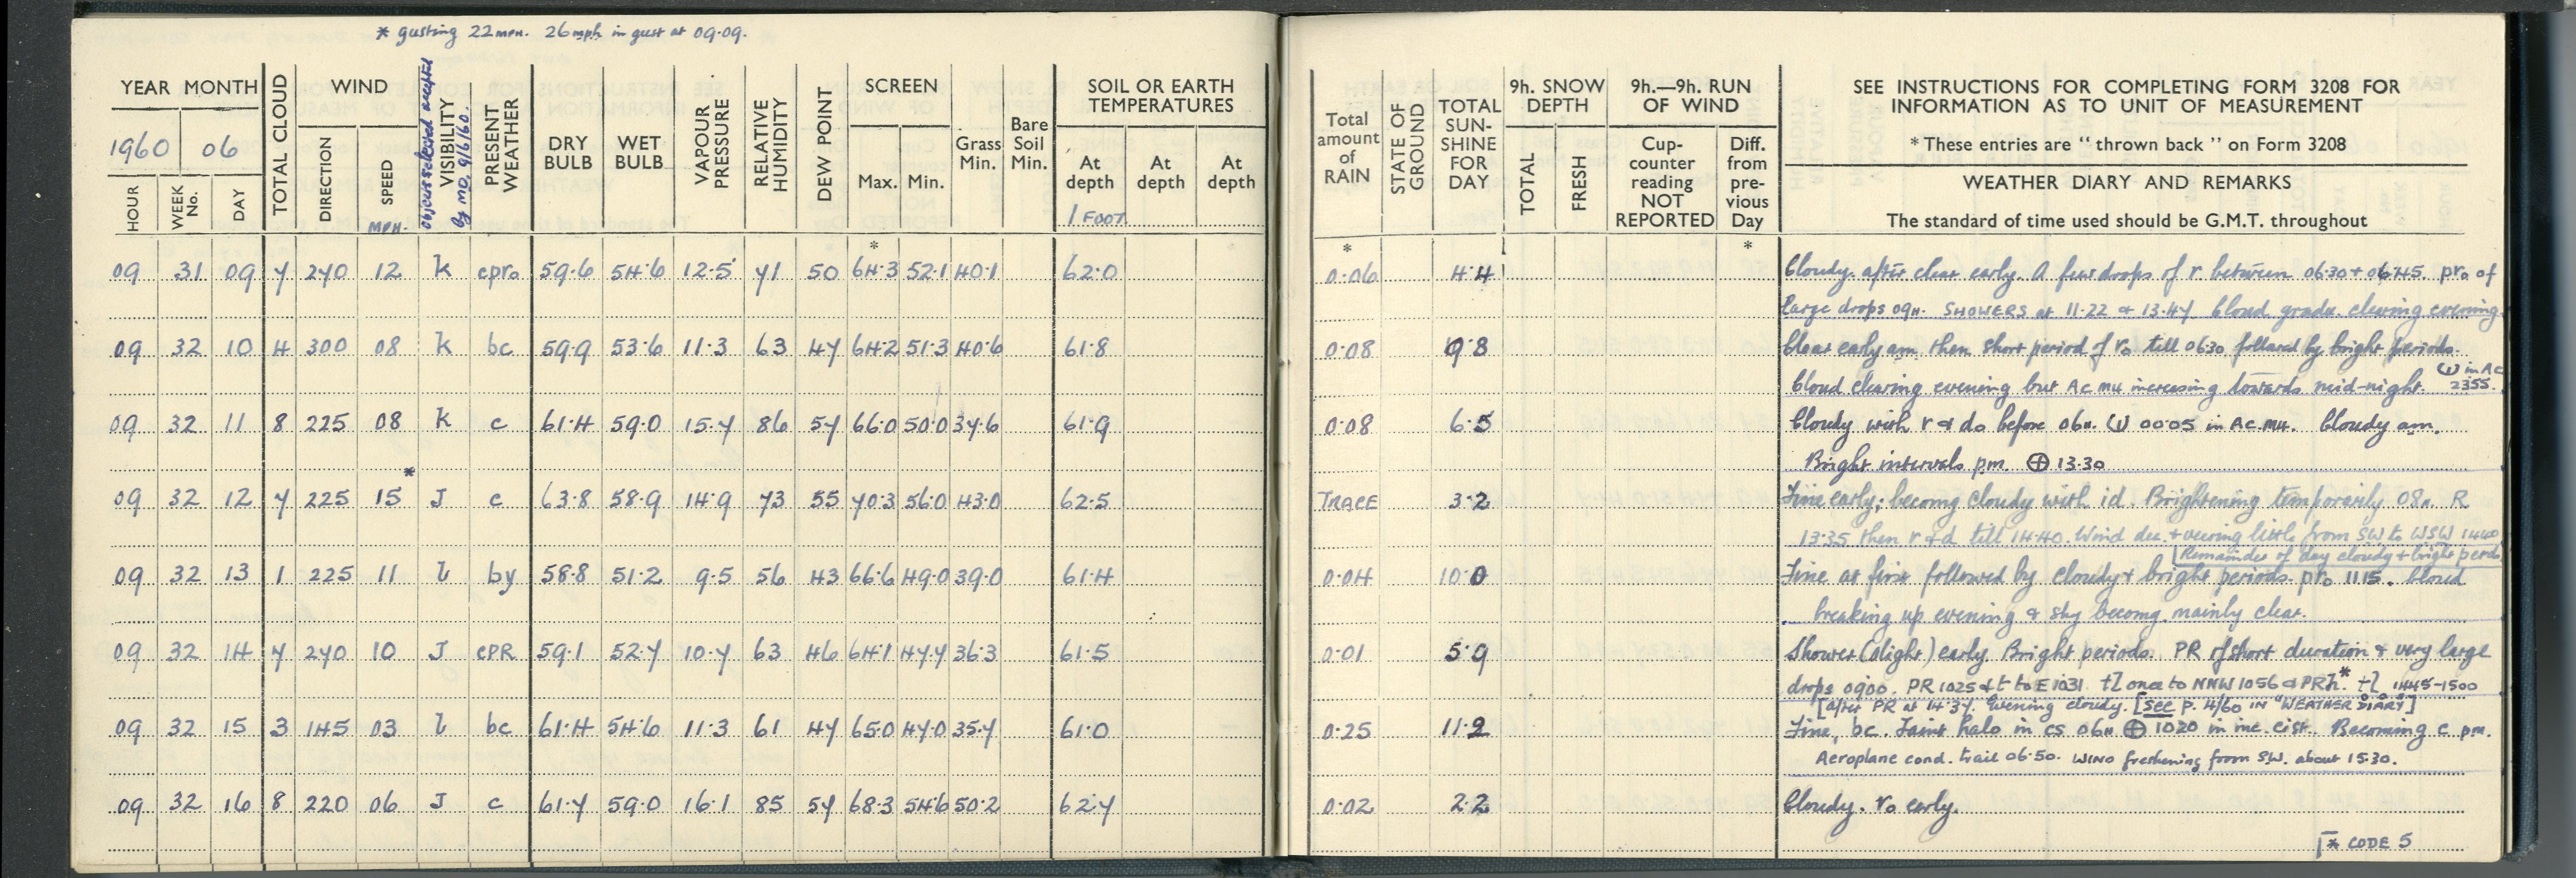 * gusting 22 MPH. 26 mph in gust at 09.09.
YEAR MONTH
1960 06
HOUR WEEK No. DAY TOTAL CLOUD WIND DIRECTION SPEED MPH. VISIBILITY objects selected accepted by MO, 9/6/60. PRESENT WEATHER DRY BULB WET BULB VAPOUR PRESSURE RELATIVE HUMIDITY DEW POINT SCREEN Max. Min. Grass Min. Bare Soil Min. SOIL OR EARTH TEMPERATURES At depth 1 FOOT. At depth At depth
Total amount of RAIN STATE OF GROUND TOTAL SUN-SHINE FOR DAY 9h. SNOW DEPTH TOTAL FRESH 9h.—9h. RUN OF WIND Cup-counter reading NOT REPORTED Diff. from pre-vious Day
SEE INSTRUCTIONS FOR COMPLETING FORM 3208 FOR
INFORMATION AS TO UNIT OF MEASUREMENT
* These entries are "thrown back" on Form 3208
WEATHER DIARY AND REMARKS
The standard of time used should be G.M.T. throughout
* * *
09 31 09 7 270 12 k cpr₀ 59.6 54.6 12.5 71 50 64.3 52.1 40.1 62.0 0.06 4.4 Cloudy. after clear early. A few drops of r between 0630 + 0645. pr₀ of
large drops 09H. SHOWERS at 11.22 & 13.47 Cloud gradu. clearing evening.
09 32 10 4 300 08 k bc 59.9 53.6 11.3 63 47 64.2 51.3 40.6 61.8 0.08 9.8 Clear early am then short period of r₀ till 0630 followed by bright periods.
Cloud clearing evening but Ac MH increasing towards mid-night. in Ac 2355.
09 32 11 8 225 08 k c 61.4 59.0 15.7 86 57 66.0 50.0 37.6 61.9 0.08 6.5 Cloudy with r & d₀ before 06H. 00.05 in Ac. MH. Cloudy am.
Bright intervals pm. ⊕ 13.30
09 32 12 7 225 15* J c 63.8 58.9 14.9 73 55 70.3 56.0 43.0 62.5 TRACE 3.2 Fine early; becomg cloudy with id. Brightening temporarily 08H. R
13.35 then r + d till 14.40. Wind dec. + veering little from SW to WSW 1440
[Remainder of day cloudy + bright perds
09 32 13 1 225 11 l by 58.8 51.2 9.5 56 43 66.6 49.0 39.0 61.4 0.04 10.0 Fine at first followed by cloudy + bright periods. pr₀ 11.15. Cloud
breaking up evening & sky becomg mainly clear.
09 32 14 7 270 10 J cPR 59.1 52.7 10.7 63 46 64.1 47.7 36.3 61.5 0.01 5.9 Shower (slight) early. Bright periods. PR of short duration & very large
drops 0900. PR 1025 & t to E 1031 tl once to NNW 1056 & PRh.* tl 1445–1500
[after PR at 14.37. Evening cloudy. [SEE P. 4/60 IN "WEATHER DIARY"]
09 32 15 3 145 03 l bc 61.4 54.6 11.3 61 47 65.0 47.0 35.7 61.0 0.25 11.2 Fine, bc. Faint halo in cs 06H ⊕ 1020 in inc. cist. Becoming c pm.
Aeroplane cond. trail 06.50. WIND freshening from SW. about 15.30.
09 32 16 8 220 06 J c 61.7 59.0 16.1 85 57 68.3 54.6 50.2 62.7 0.02 2.2 Cloudy. r₀ early.
* CODE 5